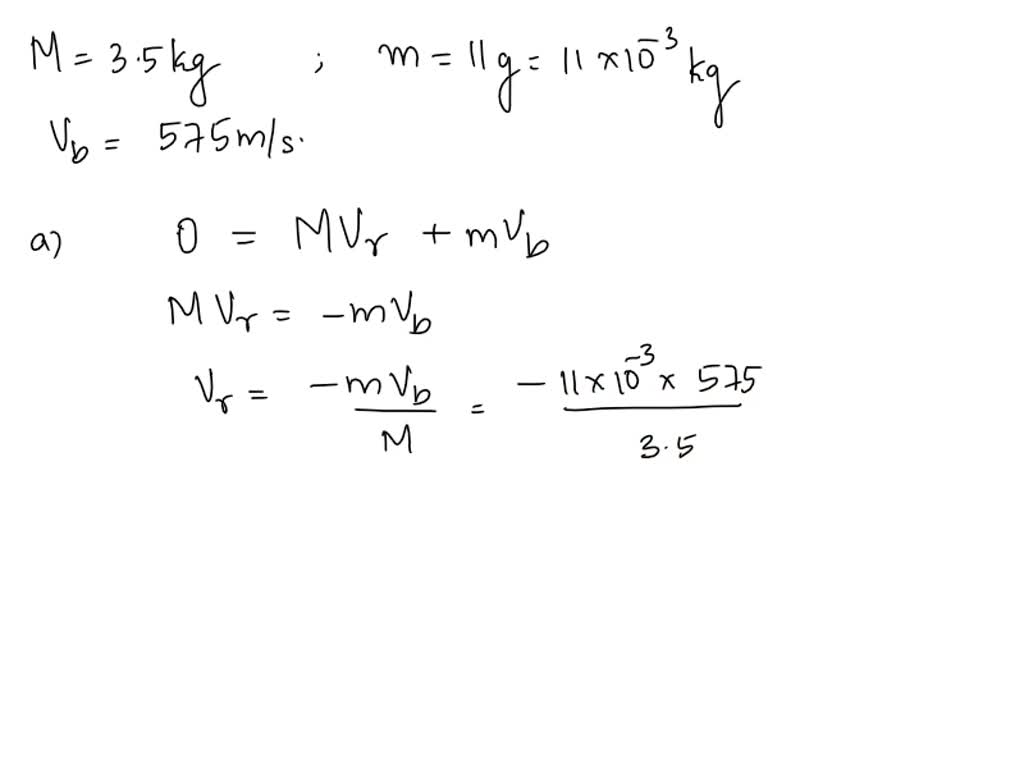 M = 3.5 kg ; m = 11 g = 11 × 10⁻³ kg
V_b = 575 m/s.
a) 0 = MV_r + mV_b
M V_r = -mV_b
V_r = -m V_b / M = - 11 × 10⁻³ × 575 / 3.5